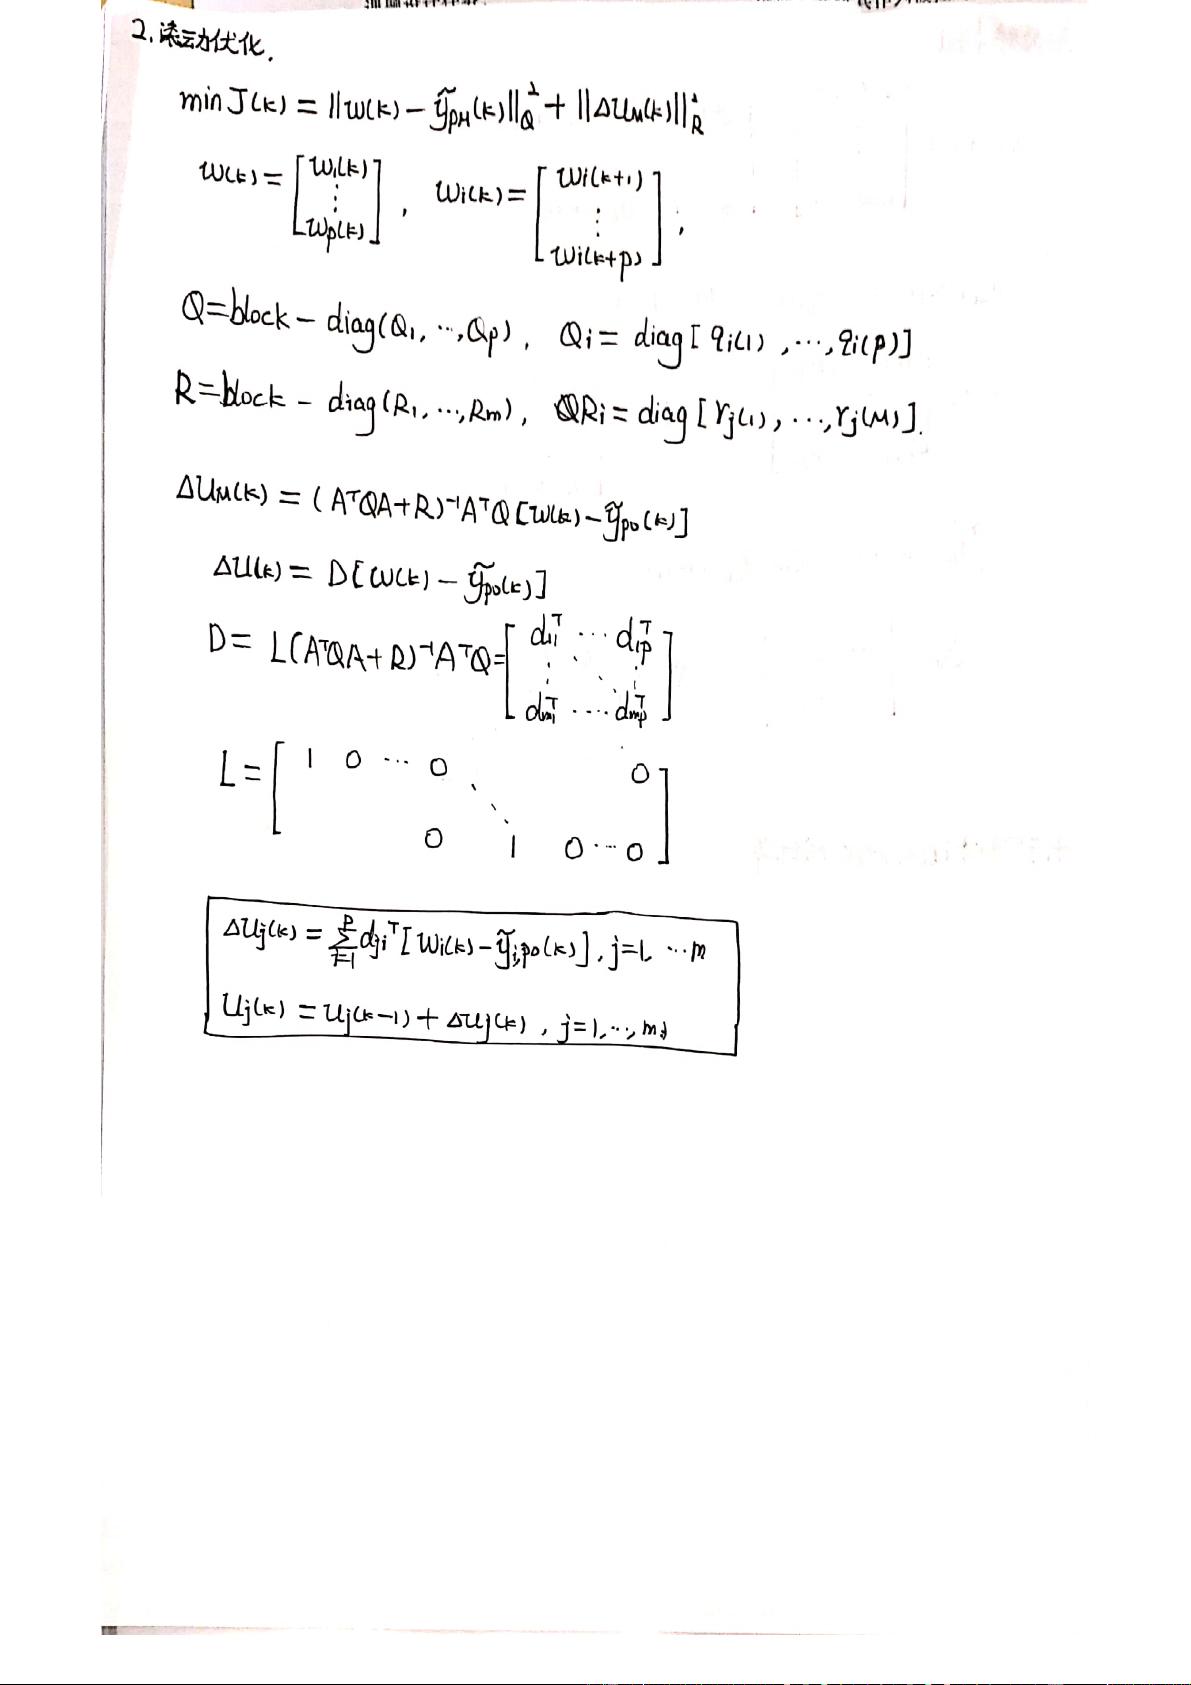 2. 滚动优化.
min J(k) = ||w(k) − ỹ_PM(k)||²_Q + ||Δu_M(k)||²_R
w(k) = [w₁(k) ⋮ w_p(k)], wi(k) = [wi(k+1) ⋮ wi(k+p)],
Q=block − diag(Q₁, ⋯, Qp), Qi = diag[qi(1), ⋯, qi(p)]
R=block − diag(R₁, ⋯, Rm), Ri = diag[rj(1), ⋯, rj(M)].
ΔU_M(k) = (AᵀQA+R)⁻¹AᵀQ[w(k)−ỹ_po(k)]
ΔU(k) = D[w(k) − ỹ_po(k)]
D = L(AᵀQA+R)⁻¹AᵀQ = [d₁₁ᵀ ⋯ d₁pᵀ ⋮ ⋱ ⋮ dm₁ᵀ ⋯ dmpᵀ]
L = [1 0 ⋯ 0 0
⋱
0 1 0 ⋯ 0]
Δuj(k) = Σ_{i=1}^{p} djiᵀ[wi(k)−ỹi,po(k)], j=1, ⋯m
uj(k) = uj(k−1) + Δuj(k), j=1, ⋯, m